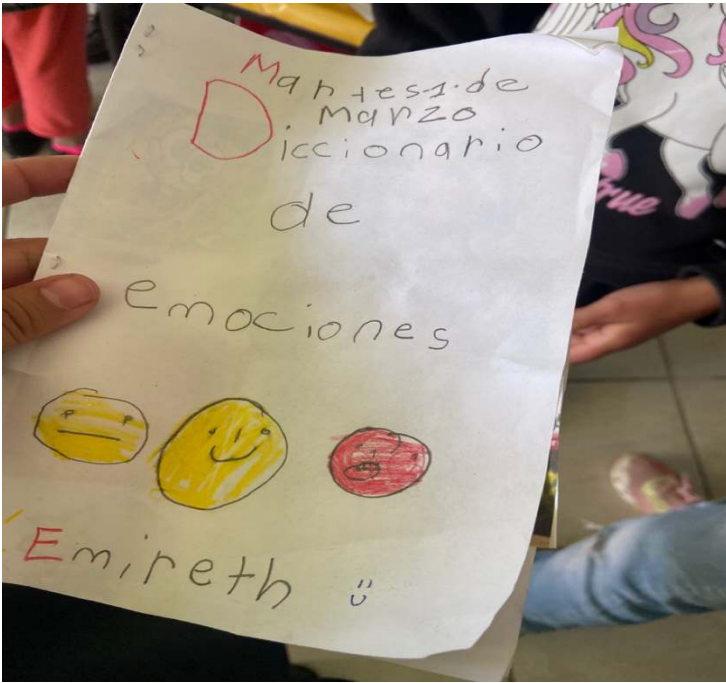 Martes 1. de
Marzo
Diccionario
de
emociones
Emireth
true